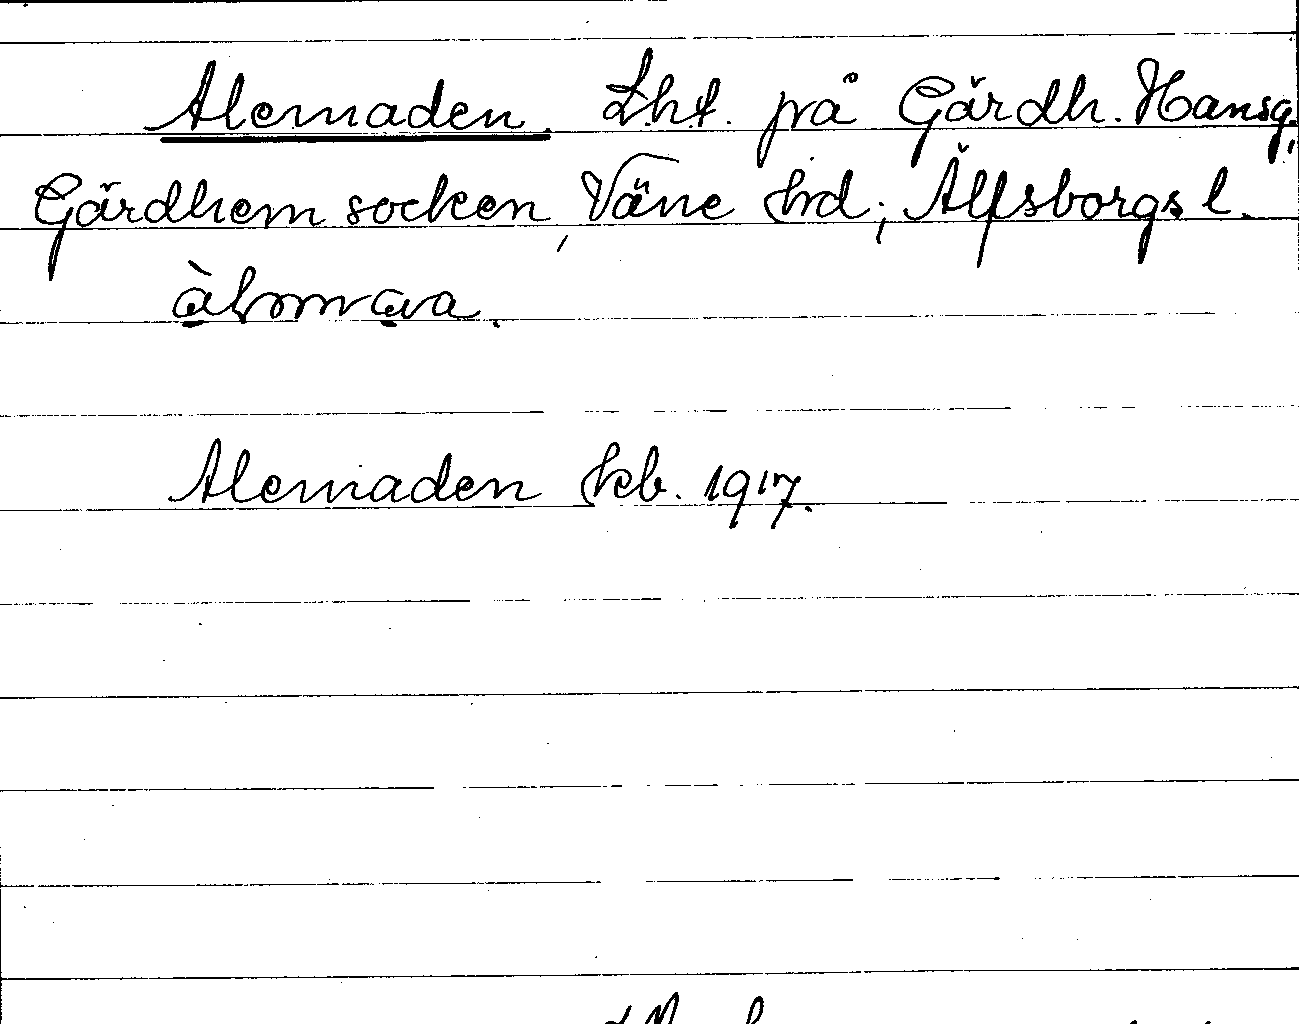 Alemaden. Lht. på Gärdh. Hansg.,
Gärdhem socken, Väne hrd; Älfsborgs l.
Alemaden hkb. 1917.